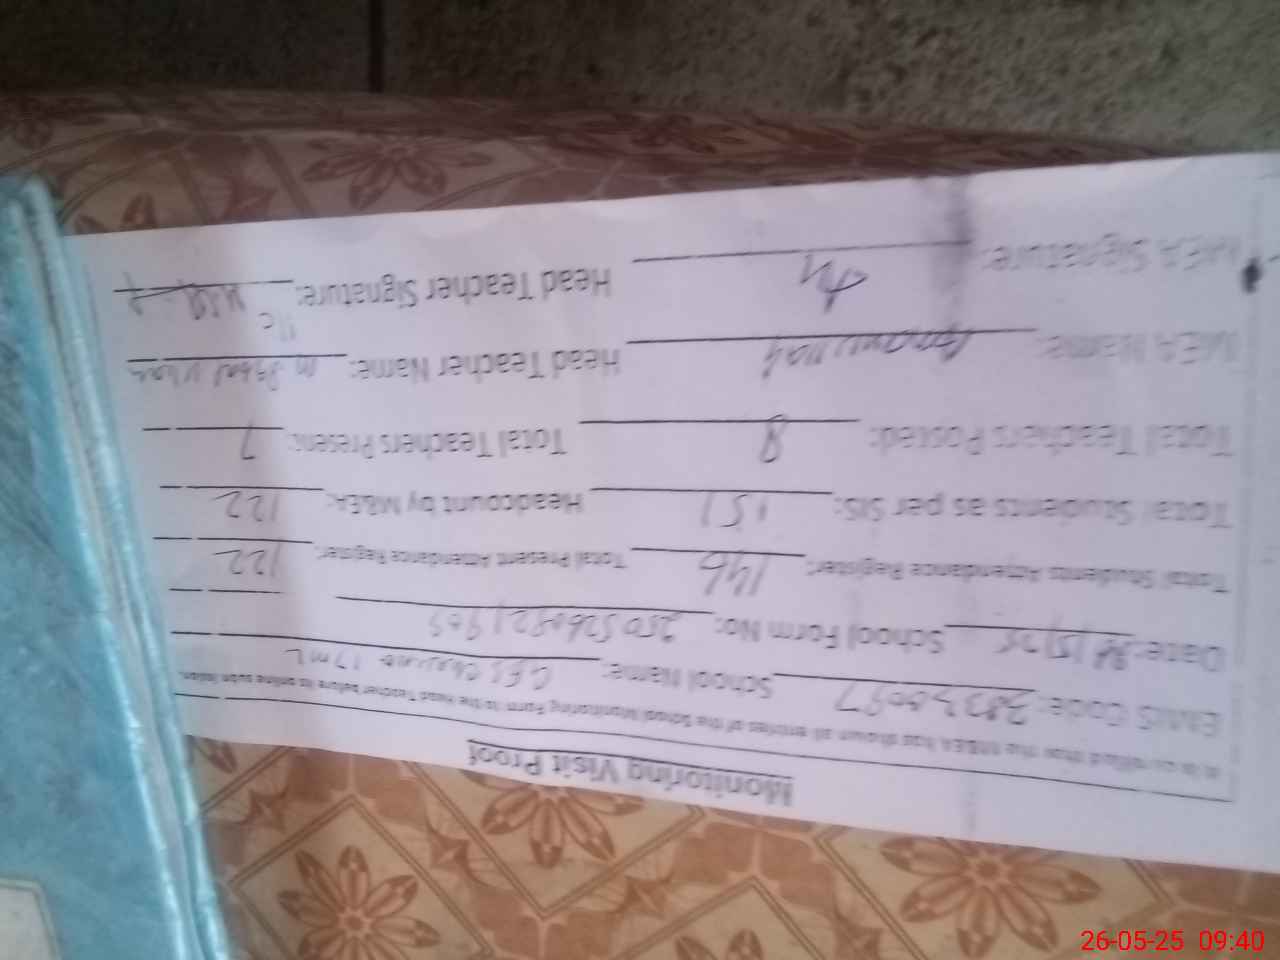 Monitoring Visit Proof
It is certified that the M&EA has shown all entries of the School Monitoring Form to the Head Teacher before its online submission.
EMIS Code: School Name: GES 17 ML
Date: School Form No: 2505260821909
Total Students Attendance Register: 146 Total Present Attendance Register: 122
Total Students as per SIS: 151 Headcount by M&EA: 122
Total Teachers Posted: 8 Total Teachers Present: 7
M&EA Name: Head Teacher Name:
M&EA Signature: Head Teacher Signature:
26-05-25 09:40